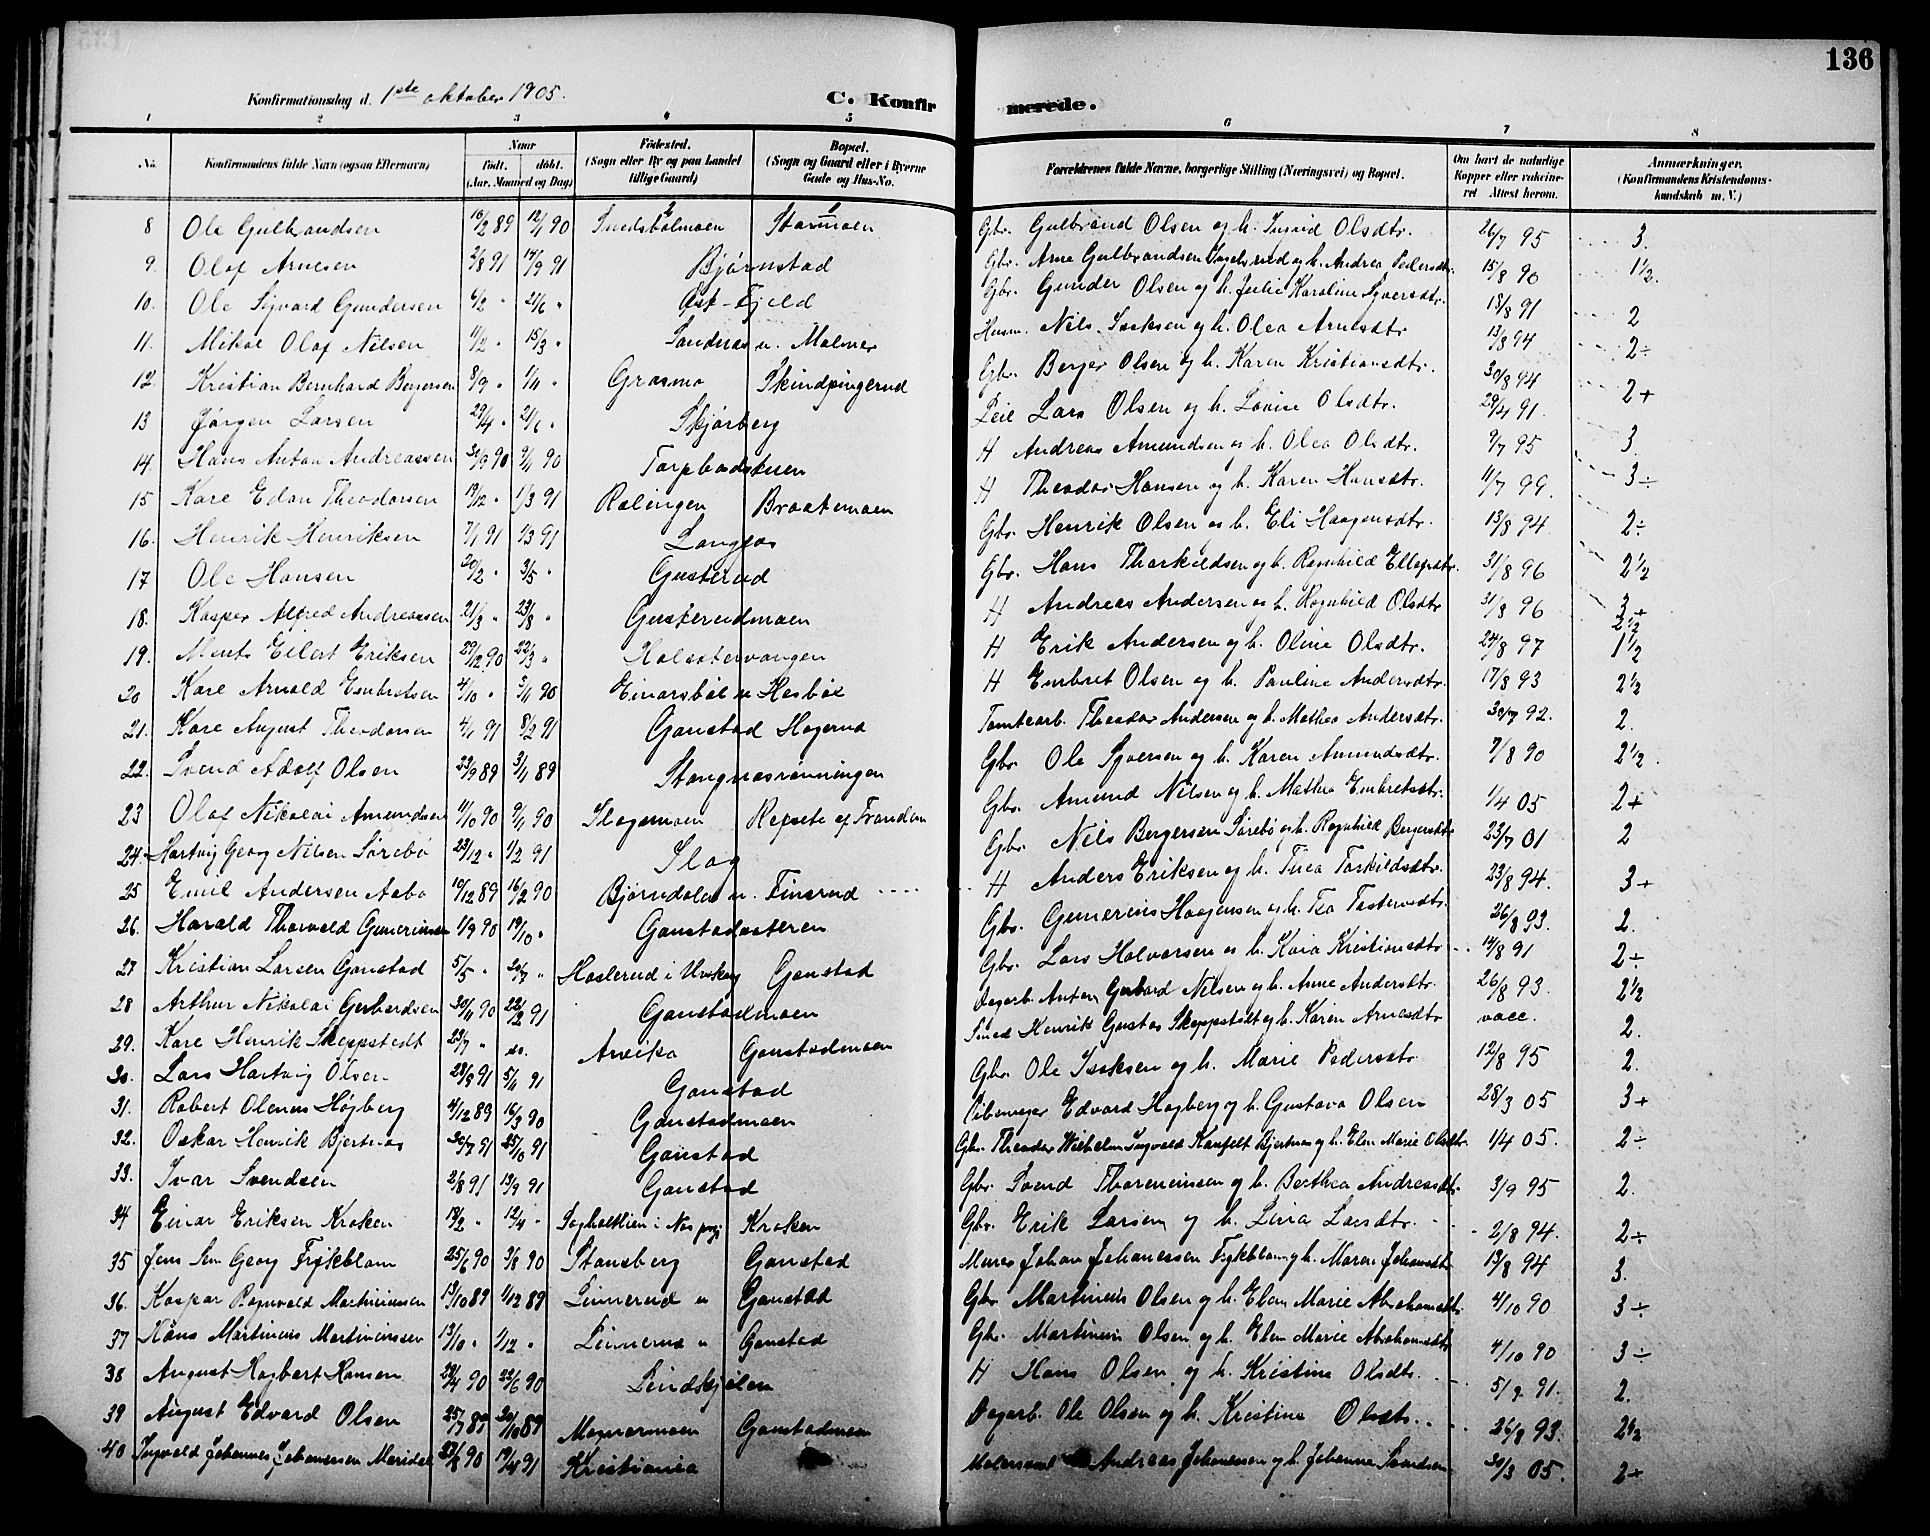 136
Konfirmationsdag d. 1ste oktober 1905.
C. Konfirmerede.
1 2 3 4 5 6 7 8
No. Konfirmandens fulde Navn (ogsaa Efternavn) Naar født. døbt. (Aar, Maaned og Dag) Fødested. (Sogn eller By og paa Landet tillige Gaard) Bopæl. (Sogn og Gaard eller i Byerne Gade og Hus-No. Forældrenes fulde Navne, borgerlige Stilling (Næringsvei) og Bopæl. Om havt de naturlige Kopper eller vaccineret Attest herom. Anmærkninger. (Konfirmandens Kristendomskundskab m. V.)
8 Ole Gulbrandsen 16/2 89 12/1 90 Starmoen Gbr. Gulbrand Olsen og h. Ingrid Olsdtr. 26/7 95 3.
9. Olaf Arnesen 2/8 91 14/9 91 Bjørnstad Gbr. Arne Gulbrandsen og h. Andrea Pedersdtr. 15/8 90 1½
10. Ole Sigvard Gundersen 6/2 " 21/6 " Øst-Fjeld Gbr. Gunder Olsen og h. Julie Karoline Syversdtr. 18/8 91 2
11. Mikal Olaf Nilsen 11/2 " 15/3 " Sanderas u. Malmer Husm. Nils Isaksen og h. Olea Arnesdtr 13/8 94 2÷
12. Kristian Bernhard Bergersen 8/9 " 1/11 " Grasmo Skindpingerud Gbr. Berger Olsen og h. Karen Kristiansdtr. 30/8 94 2+
13 Jørgen Larsen 29/4 " 21/6 " Skjørberg Leil Lars Olsen og h. Lovise Olsdtr. 29/4 91. 3
14. Hans Anton Andreassen 30/9 90 9/11 90 Torpbadstuen H Andreas Amundsen og h. Olea Olsdtr. 9/7 95 3÷
15 Kare Edon Theodorsen 19/12 " 1/3 91 Rælingen Braatemoen H Theodor Hansen og h. Karen Hansdtr. 11/7 99.
16. Henrik Henriksen 7/1 91 1/3 91 Langaas Gbr. Henrik Olsen og h. Eli Haagensdtr. 13/8 94 2÷
17 Ole Hansen 20/2 " 3/5 " Gusterud Gbr. Hans Thorkildsen og h. Ragnhild Ellefsdtr. 31/8 96 2½
18. Kasper Alfred Andreassen 21/3 " 23/8 " Gusterudmoen H Andreas Andersen og h. Ragnhild Olsdtr 31/8 96 3+ 2½
19. Ments Eilert Eriksen 29/12 90 22/3 " Kolsætervangen H Erik Andersen og h. Oline Olsdtr. 24/8 97 1½
20 Kare Arnold Embretsen 4/10 " 3/11 90 Einarsbøl u Hesbøl H Embret Olsen og h. Pauline Andersdtr. 17/8 93 2½
21. Kare August Theodorsen 4/1 91 8/2 91 Ganstad Hagerud Tomtearb. Theodor Andersen og h. Mathea Andersdtr. 30/7 92. 2.
22. Svend Adolf Olsen 23/9 89 3/11 89 Stangnæsrønningen Gbr. Ole Syversen og h. Karen Amundsdtr. 7/8 90 2½.
23 Olaf Nikolai Amundsen 11/10 90 9/11 90 Slagemoen Gbr. Amund Nilsen og h. Mathea Embretsdtr. 1/4 05 2+
24. Hartvig Georg Nilsen Sørebø 23/12 " 1/2 91 Slag Gbr. Nils Bergersen Sørebø og h. Ragnhild Bergersdtr 23/7 01 2
25 Emil Andersen Aabo 10/12 89 16/2 90 Bjørndalen u. Finsrud H Anders Eriksen og h. Thea Torkildsdtr. 23/8 94. 3+
26. Harald Thorvald Gunerinsen 1/9 90 19/10 " Ganstadæteren Gbr. Gunerius Haagensen og h. 26/8 93. 2.
27 Kristian Larsen Ganstad 5/5 " 20/7 " Haslerud i Urskog Ganstad Gbr. Lars Halvorsen og h. Kaia Kristiansdtr 14/8 91 2÷
28 Arthur Nikolai Gerhardsen 30/11 90 22/2 91 Ganstadmoen Dagarb. Anton Gerhard Nilsen og h. Anne Andersdtr. 26/8 93. 2½
29. Kare Henrik Skeppstedt 23/7 " do. Arvika Ganstadmoen Smed Henrik Gustav Skeppstedt og h. Karen Arnesdtr vacc. 2.
30. Lars Hartvig Olsen 28/9 91 5/11 91 Ganstad Gbr. Ole Isaksen og h. Marie Pedersdtr 12/8 95 2.
31. Robert Olenius Høgberg 4/12 89 16/3 90 Ganstadmoen Edvard Høgberg og h. Gustava Olsen 28/3 05 3+
32. Oskar Henrik Bjertnæs 30/7 91 25/10 91 Ganstad Gbr. Theodor Wilhelm Ingvald Kanfelt Bjertnæs og h. Elen Marie Olsdtr. 1/4 05. 2÷
33. Ivar Svendsen 2/8 91 13/9 91 Ganstad Gbr Svend Thoreniussen og h. Berthea Andreasdtr. 3/9 95 2.
34 Einar Eriksen Kroken 18/2 " 12/4 " Kroken Gbr. Erik Larsen og h. Lina Larsdtr. 2/8 94. 2÷
35 Jens Sem Georg Frykblom 25/6 90 3/8 90 Stansberg Ganstad Murer Johan Johanessen Frykblom og h. Maren Johansdtr 13/8 94 3.
36. Kaspar Ragnvald Martiniussen 13/10 89 1/12 89 Linnerud u Ganstad Gbr. Martinius Olsen og h. Elen Marie Abrahamsdtr. 4/10 90 3÷
37 Hans Martinius Martiniussen 13/10 " 1/12 " Linnerud u Ganstad Gbr. Martinius Olsen og h. Elen Marie Abrahamsdtr 4/10 90 3÷
38 August Hagbart Hansen 29/4 90 22/6 90 Lindkjølen H Hans Olsen og h. Kristine Olsdtr. 5/9 91. 2.
39 August Edvard Olsen 25/7 89 20/10 89 Magnormoen Ganstadmoen Dagarb. Ole Olsen og h. Kristine Olsdtr. 26/8 93. 2½
40 Ingvald Johannes Johannesen Maridal 23/2 90 19/4 91 Kristiania Andreas Johannesen og h. Johanne Svendsen 30/3 05. 2+